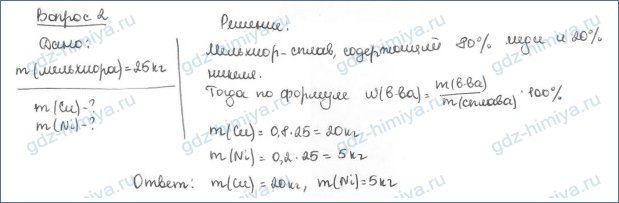 Вопрос 2
Дано:
m(мельхиора)=25кг
m(Cu)-?
m(Ni)-?
Решение:
Мельхиор-сплав, содержащий 80% меди и 20%
никеля.
Тогда по формуле w(в-ва) = m(в-ва)/m(сплава) · 100%
m(Cu) = 0,8·25 = 20кг
m(Ni) = 0,2·25 = 5кг
Ответ: m(Cu)=20кг, m(Ni)=5кг
gdz-himiya.ru
gdz-himiya.ru
gdz-himiya.ru
gdz-himiya.ru
gdz-himiya.ru
gdz-himiya.ru